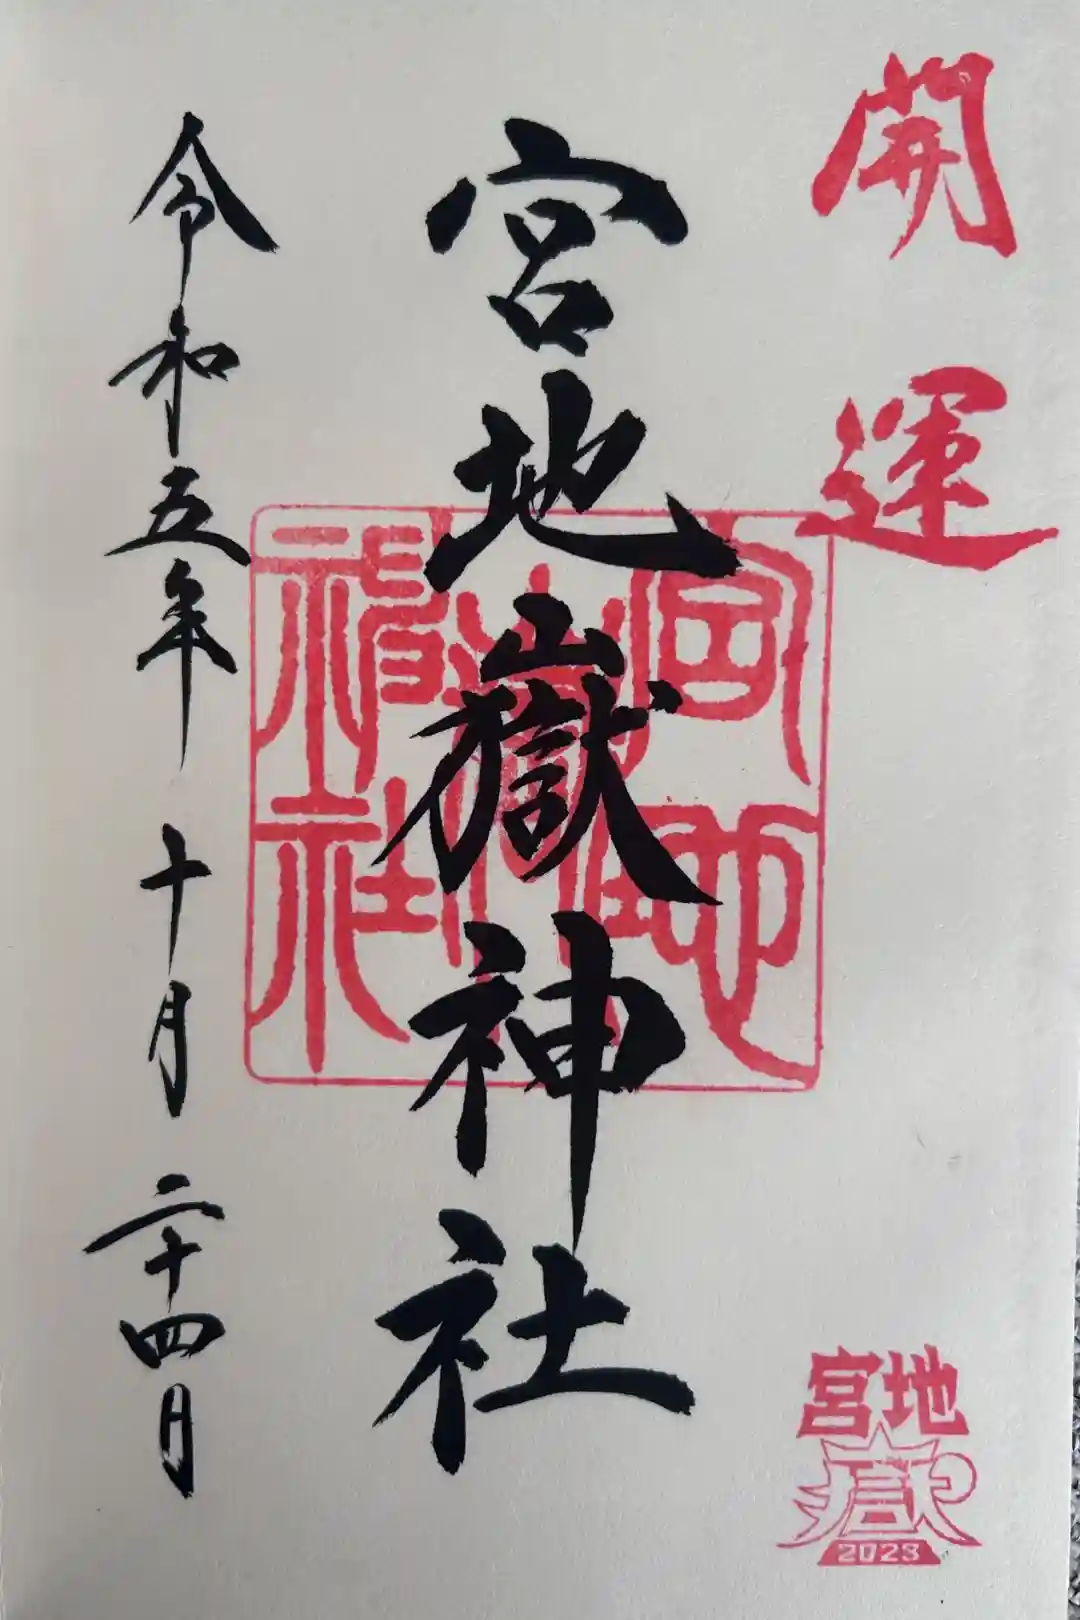 開運
宮地嶽神社
宮地
嶽神
社
令和五年十月二十四日
宮地
嶽
2023